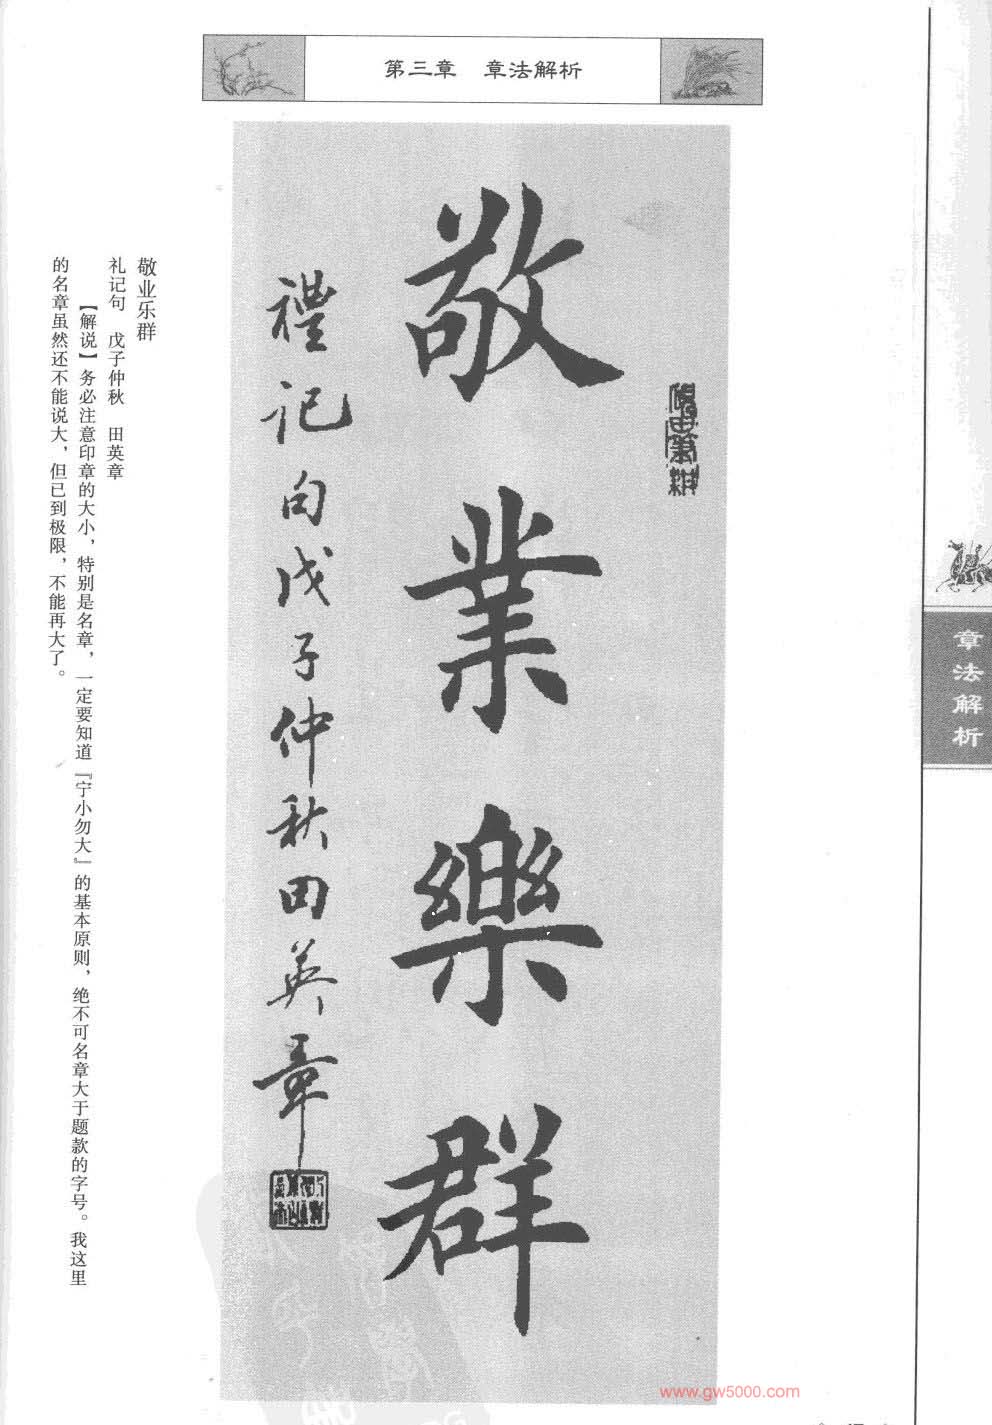 第三章　章法解析
敬業樂群
禮记句戊子仲秋田英章
敬业乐群
礼记句　戊子仲秋　田英章
【解说】务必注意印章的大小，特别是名章，一定要知道『宁小勿大』的基本原则，绝不可名章大于题款的字号。我这里
的名章虽然还不能说大，但已到极限，不能再大了。
章法解析
www.gw5000.com